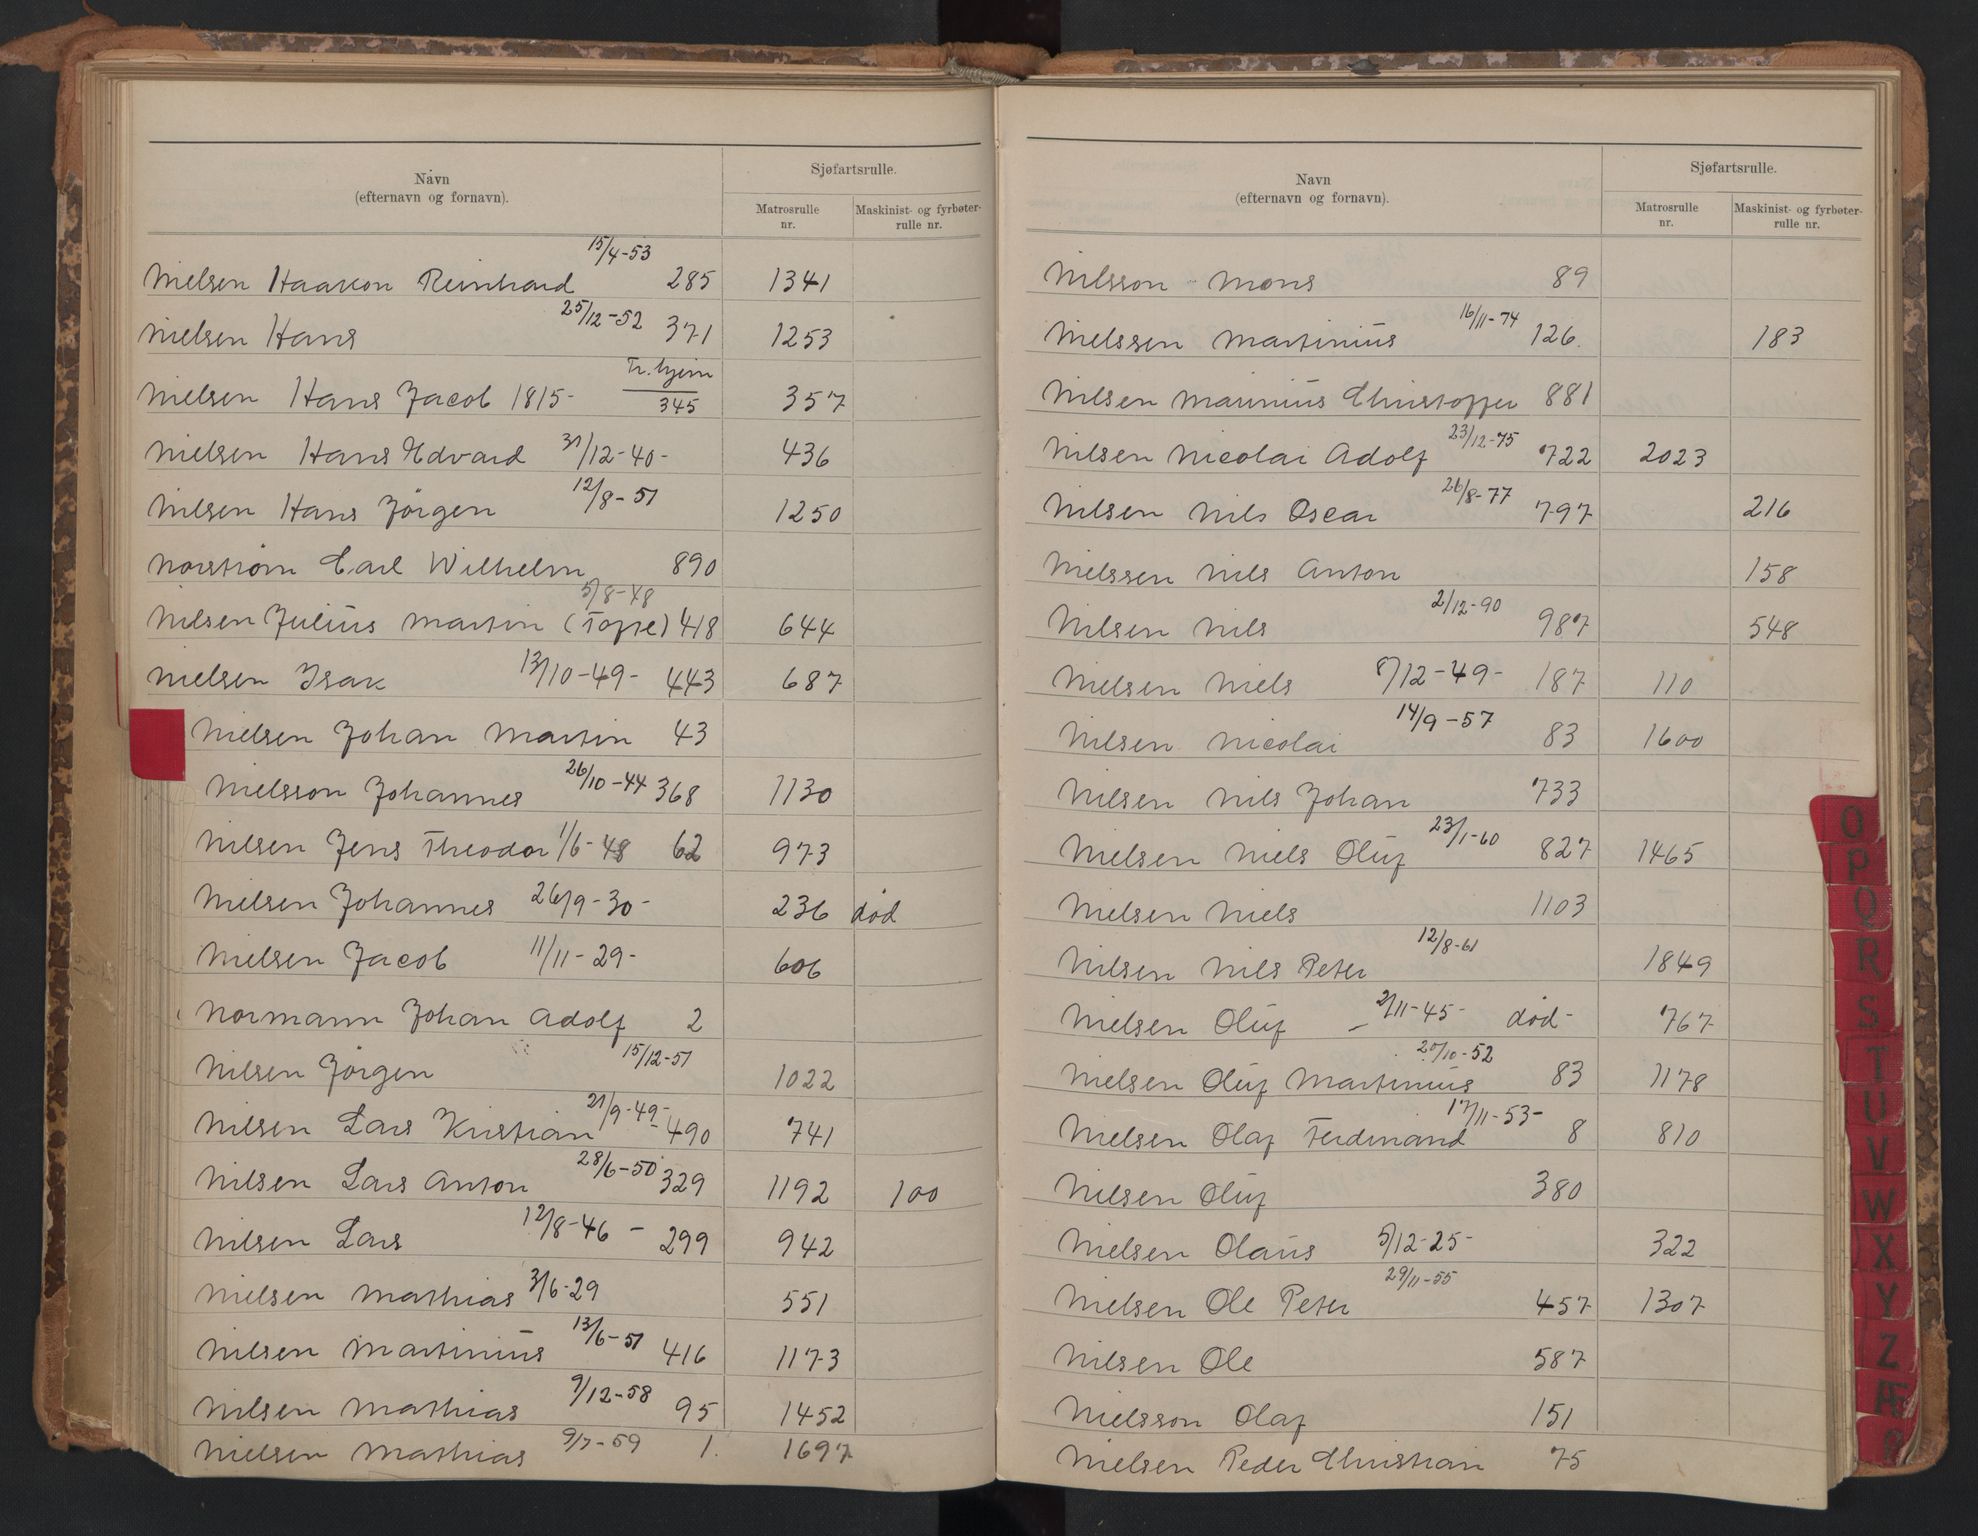 Navn
(efternavn og fornavn).
Sjøfartsrulle.
Matrosrulle nr.
Maskinist- og fyrbøter-rulle nr.
Nielsen Haakon Reinhard 15/4-53 285 1341
Nielsen Hans 25/12-52 371 1253
Nielsen Hans Jacob 1815- Tr.hjem 345 357
Nielsen Hans Edvard 31/12-40- 436
Nilsen Hans Jörgen 12/8-51 1250
Norstrøm Carl Wilhelm 890
Nilsen Julius Martin (Topse) 5/8-48 418 644
Nielsen Isak 13/10-49- 443 687
Nielsen Johan Martin 43
Nielsson Johannes 26/10-44 368 1130
Nilsen Jens Theodor 1/6-48 62 973
Nielsen Johannes 26/9-30- 236 død
Nielsen Jacob 11/11-29- 606
Normann Johan Adolf 2
Nilsen Jörgen 15/12-51 1022
Nilsen Lars Kristian 21/9-49- 490 741
Nilsen Lars Anton 28/6-50 329 1192 100
Nilsen Lars 12/8-46 - 299 942
Nielsen Mathias 3/6-29 551
Nilsen Martinius 13/6-51 416 1173
Nilsen Mathias 9/12-58 95 1452
Nielsen Mathias 9/7-59 1. 1697
Navn
(efternavn og fornavn).
Sjøfartsrulle.
Matrosrulle nr.
Maskinist- og fyrbøter-rulle nr.
Nilsson Mons 89
Nielssen Martinius 16/11-74 126. 183
Nilsen Marinius Christoffer 881
Nilsen Nicolai Adolf 23/12-75 722 2023
Nilsen Nils Oscar 26/8-77 797 216
Nielssen Nils Anton 158
Nilsen Nils 2/12-90 987 548
Nielsen Niels 8/12-49- 187 110
Nilsen Nicolai 14/9-57 83 1600
Nilsen Nils Johan 733
Nielsen Niels Oluf 23/1-60 827 1465
Nielsen Niels 1103
Nilsen Nils Peter 12/8-61 1849
Nielsen Oluf - 2/11-45- død- 767
Nielsen Oluf Martinius 20/10-52 83 1178
Nielsen Olaf Ferdinand 17/11-53- 8 810
Nilsen Oluf 380
Nielsen Olaus 5/12-25- 322
Nielsen Ole Peter 29/11-55 457 1307
Nilsen Ole 587
Nielsson Olaf 151
Nielsen Peder Christian 75
O
P
Q
R
S
T
U
V
W
X
Y
Z
Æ